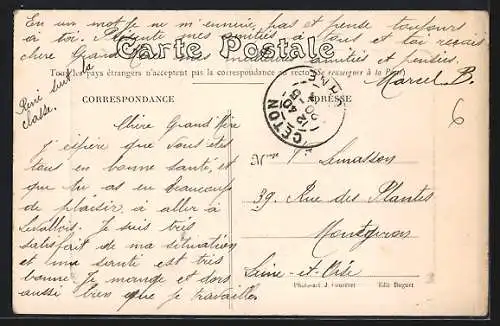 En un mot je ne m'ennuie pas et pense toujours
à toi. Présente mes amitiés à tous et toi reçois
chère Grand mes meilleures amitiés et pensées.
Marcel B.
Carte Postale
Tous les pays étrangers n'acceptent pas la correspondance au recto (Se renseigner à la Poste)
René sur la
classe.
CORRESPONDANCE
ADRESSE
CETON
ORNE
6
Chère Grand'Mère
J'espère que vous êtes
tous en bonne santé, et
que tu as eu beaucoup
de plaisir, à aller à
Levallois. Je suis très
satisfait de ma situation
et ma santé est très
bonne. Je mange et dors
aussi bien que je travaille.
Mme Limasson
39, Rue des Plantes
Montgeron
Seine-et-Oise
Photocol J. Bouveret Edit Huguet